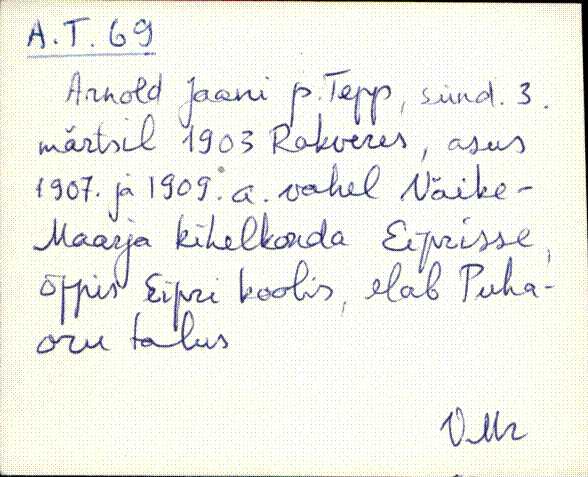 A.T. 69
Arnold Jaani p. Tepp, sünd. 3.
märtsil 1903 Rakveres, asus
1907. ja 1909. a. vahel Väike-
Maarja kihelkonda Eiprisse,
õppis Eipri koolis, elab Puha-
oru talus
VMr